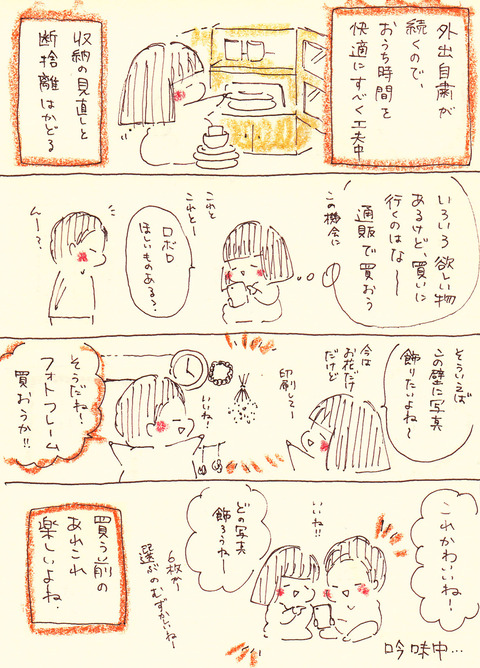 外出自粛が
続くので、
おうち時間を
快適にすべく工夫中
収納の見直しと
断捨離はかどる
いろいろ欲しい物
あるけど、買いに
行くのはな〜
通販で買おう
この機会に
これと
これと…
ロボロ
ほしいものある?
んー?
そういえば
この壁に写真
飾りたいよね〜
今は
お花だけ
だけど
印刷しよー
いいね!
そうだね!
フォトフレーム
買おうか!!
これかわいいね!
いいね!!
どの写真
飾ろうねー
6枚かー
選ぶのむずかしいねー
買う前の
あれこれ
楽しいよね.
吟味中…